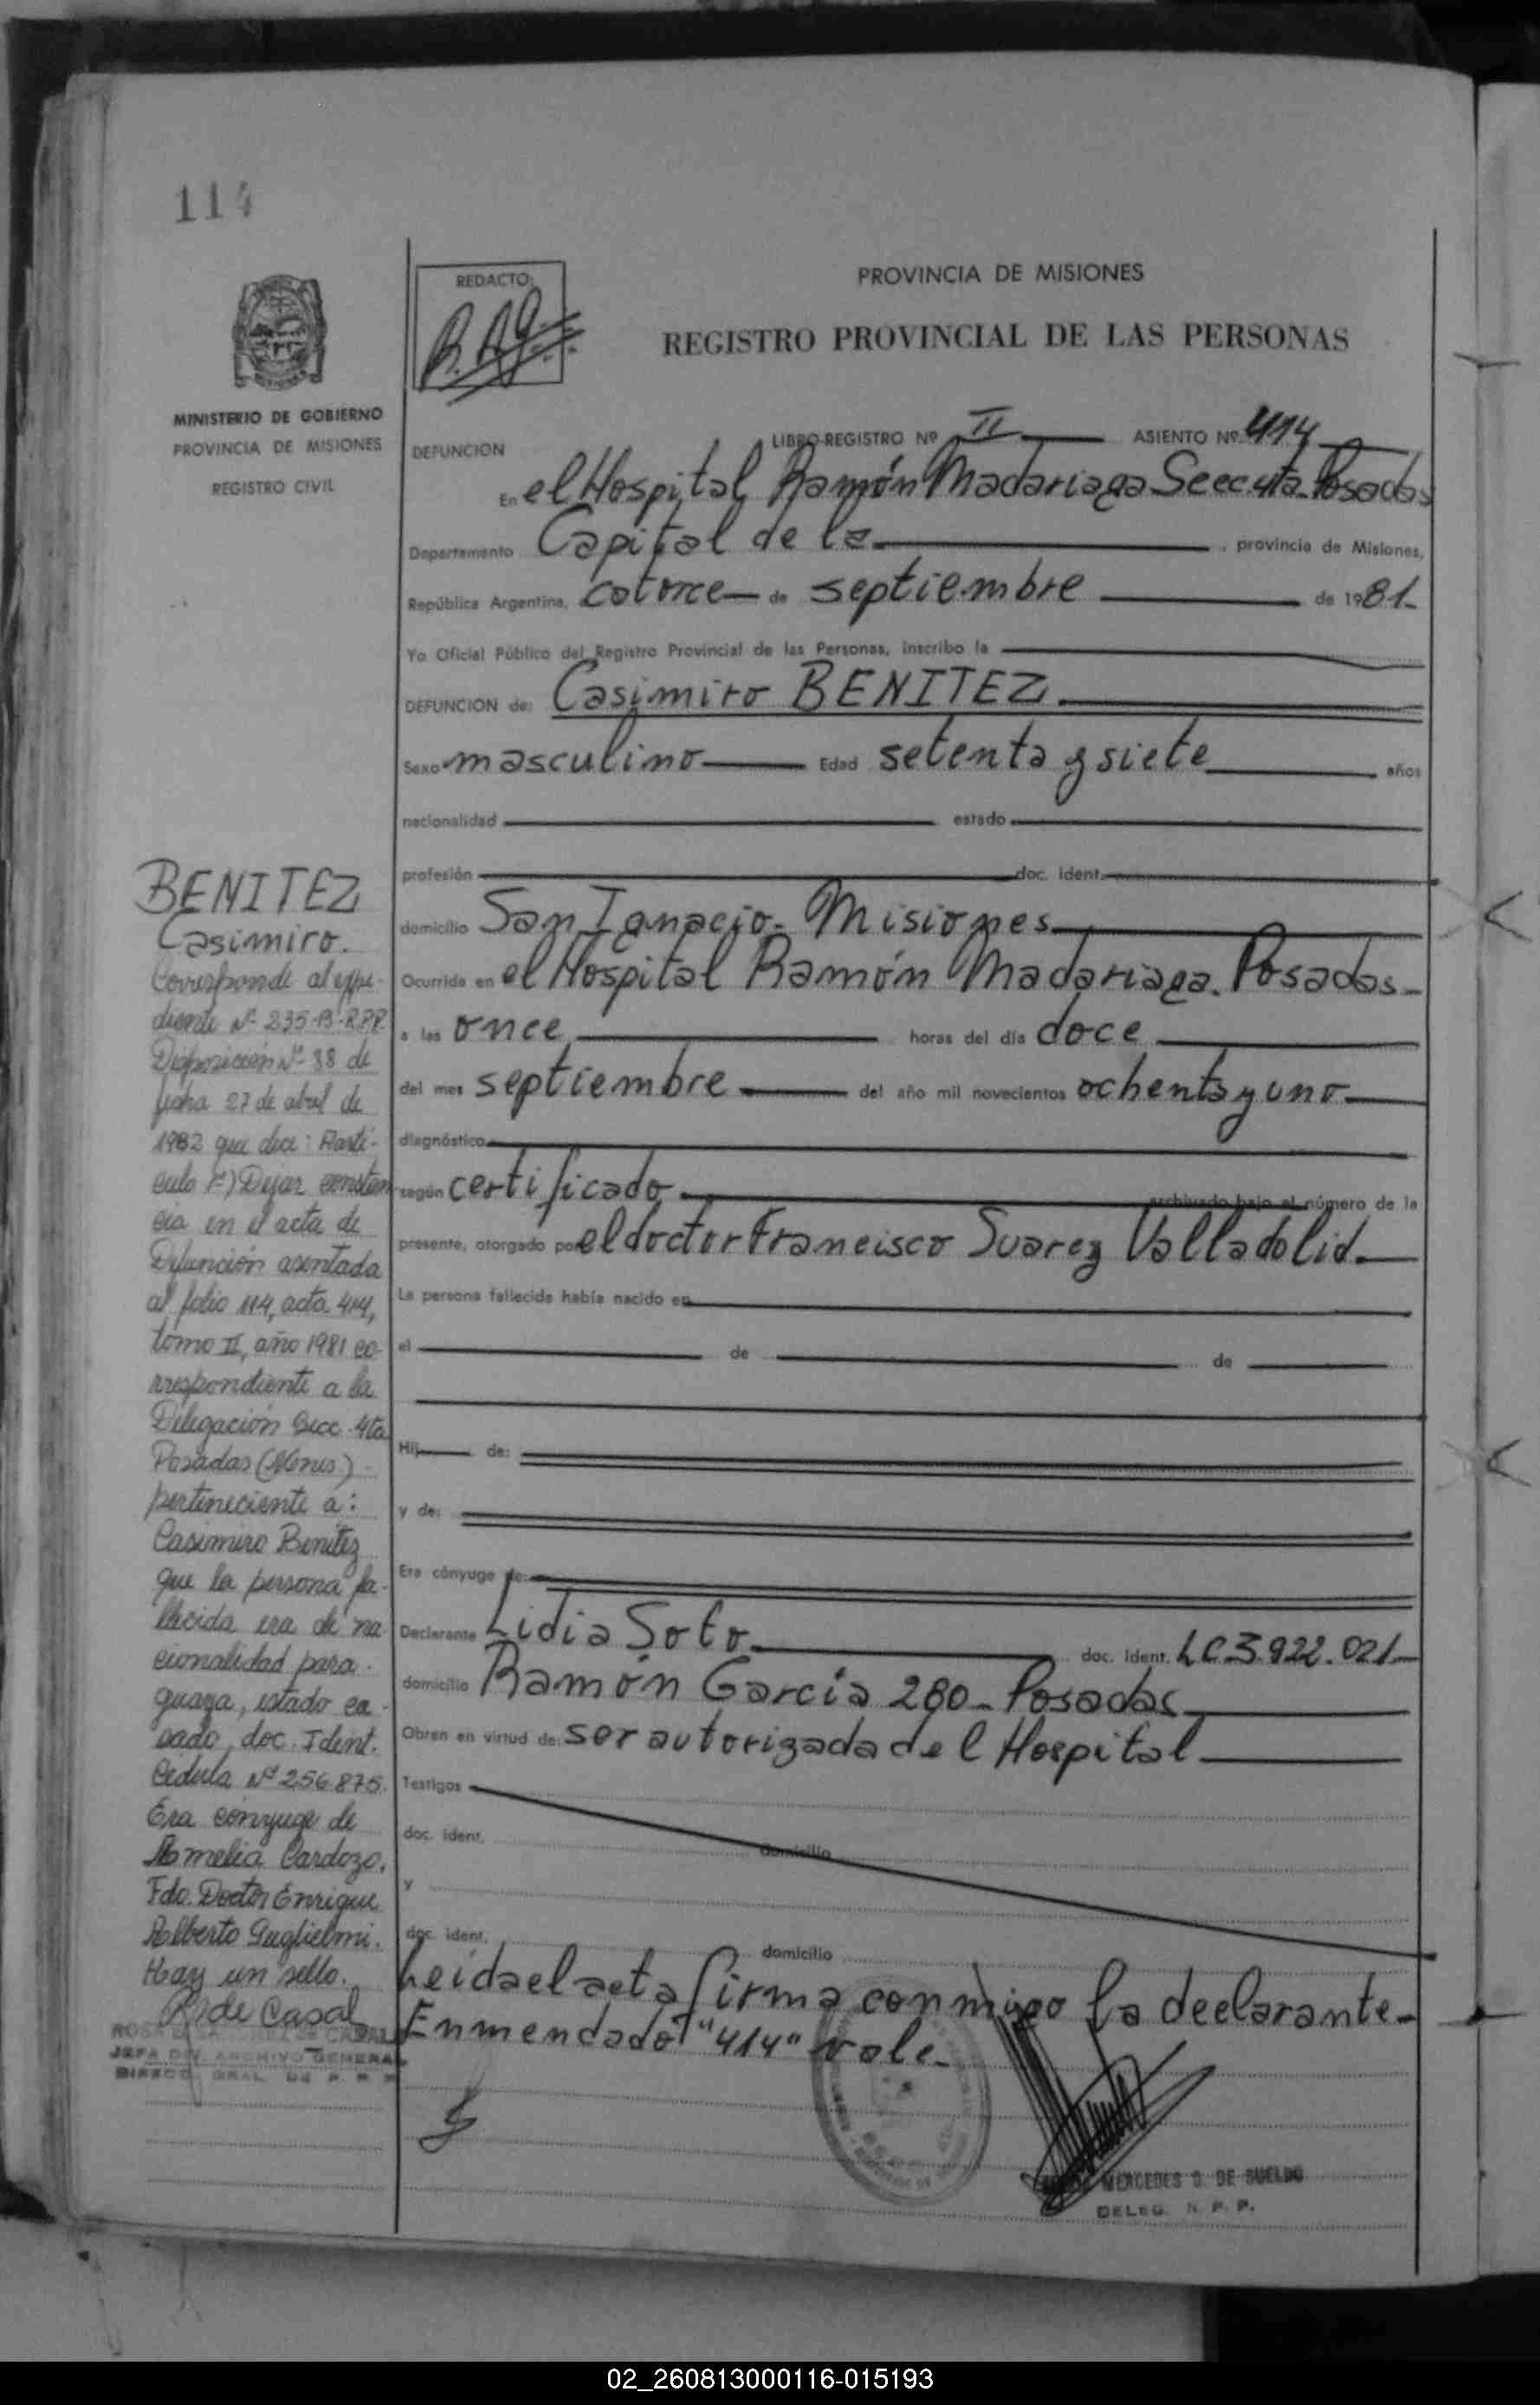 114
MINISTERIO DE GOBIERNO
PROVINCIA DE MISIONES
REGISTRO CIVIL
REDACTO:
PROVINCIA DE MISIONES
REGISTRO PROVINCIAL DE LAS PERSONAS
DEFUNCION LIBRO-REGISTRO Nº II ASIENTO Nº 414
En el Hospital Ramón Madariaga Secc. 4ta. Posadas
Departamento Capital de la provincia de Misiones,
República Argentina, catorce de septiembre de 1981.
Yo Oficial Público del Registro Provincial de las Personas, inscribo la
DEFUNCION de: Casimiro BENITEZ
Sexo masculino Edad setenta y siete años
nacionalidad estado
profesión doc. ident.
domicilio San Ignacio - Misiones
Ocurrida en el Hospital Ramón Madariaga. Posadas
a las once horas del día doce
del mes septiembre del año mil novecientos ochenta y uno
diagnóstico
según certificado archivado bajo el número de la
presente, otorgado por el doctor Francisco Suarez Valladolid
La persona fallecida había nacido en
el de de
Hij de:
y de:
Era cónyuge de:
Declarante Lidia Soto doc. ident. LC 3.922.021
domicilio Ramón García 280 - Posadas
Obran en virtud de: ser autorizada del Hospital
Testigos
doc. ident. domicilio
y
doc. ident. domicilio
Leida el acta firma conmigo la declarante
Enmendado "414" vale
MERCEDES DE SUELDO
DELEG. R. P. P.
BENITEZ
Casimiro.
Corresponde al expe-
diente Nº 235-B-RPP
Disposición Nº 38 de
fecha 27 de abril de
1982 que dice: Artí-
culo 1º) Dejar constan
cia en el acta de
Defunción asentada
al folio 114, acta 414,
tomo II, año 1981 co-
rrespondiente a la
Delegación Secc. 4ta
Posadas (Mnes.)
perteneciente a:
Casimiro Benítez
que la persona fa-
llecida era de na
cionalidad para-
guaya, estado ca-
sado, doc. Ident.
Cédula Nº 256.875.
Era cónyuge de
Amelia Cardozo.
Fdo. Doctor Enrique
Alberto Guglielmi.
Hay un sello.
R. de Casal
JEFA DIV. ARCHIVO GENERAL
02_260813000116-015193